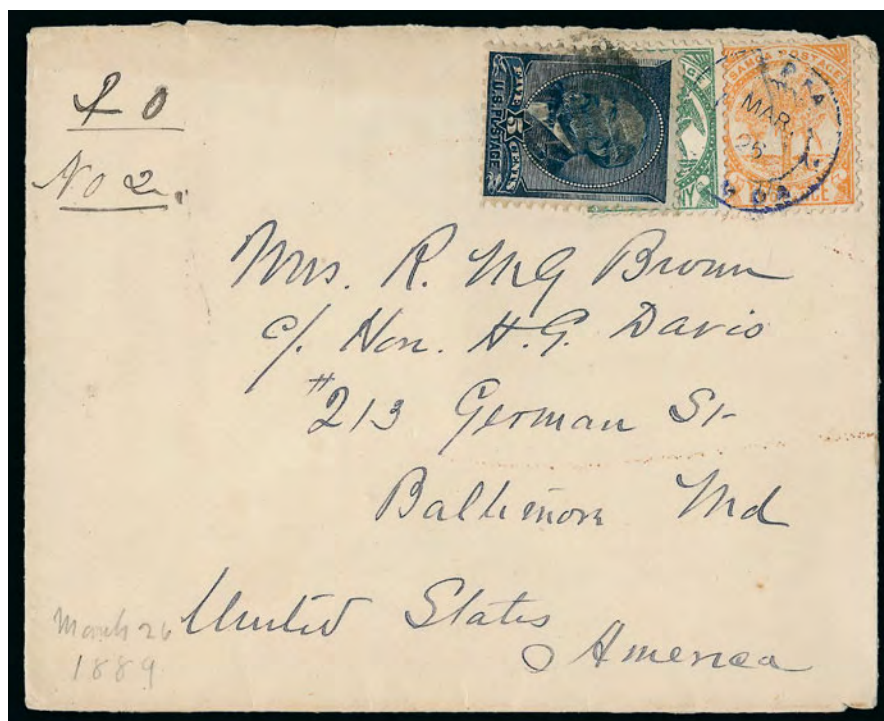 P O
No 2.
FIVE 5 CENTS
U.S. POSTAGE
SAMOA POSTAGE
MAR.
25
Mrs. R. McG Brown
c/. Hon. H. G. Davis
#213 German St
Baltimore Md
United States
America
March 26
1889